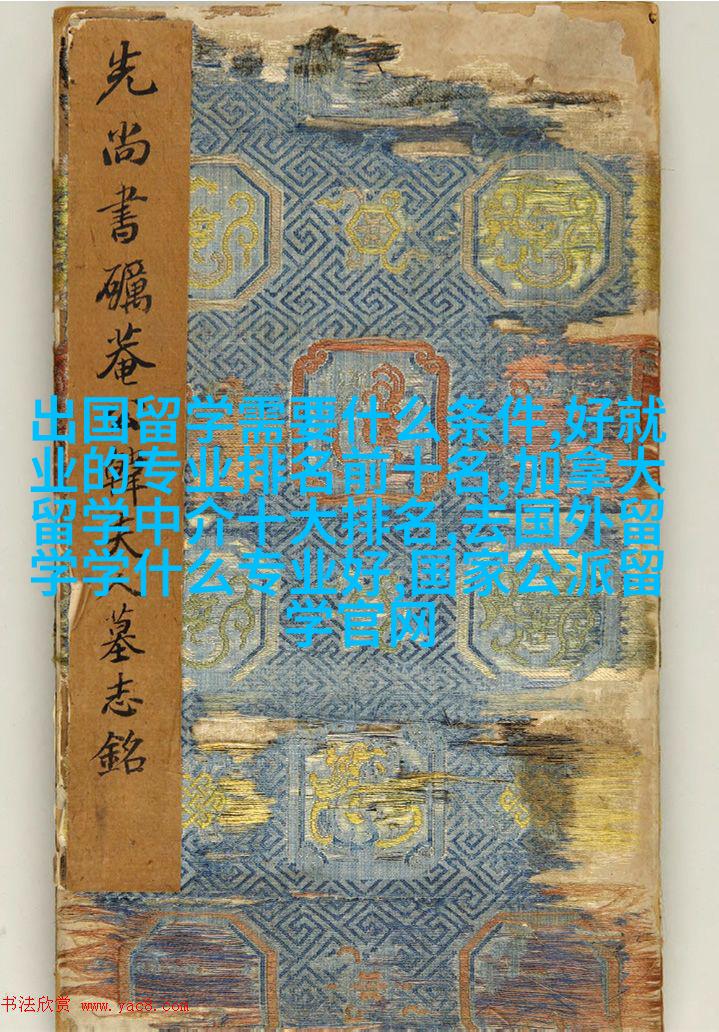 先尚書礪菴公韓夫人墓志銘
出国留学需要什么条件,好就
业的专业排名前十名,加拿大
留学中介十大排名,去国外留
学学什么专业好,国家公派留
学官网
书法欣赏 www.yac8.com